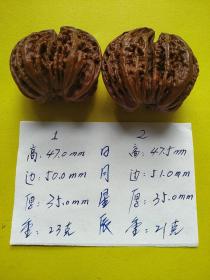 1 2
高：47.0mm 日 高：47.5mm
边：50.0mm 月 边：51.0mm
厚：35.0mm 星 厚：35.0mm
重：23克 辰 重：21克